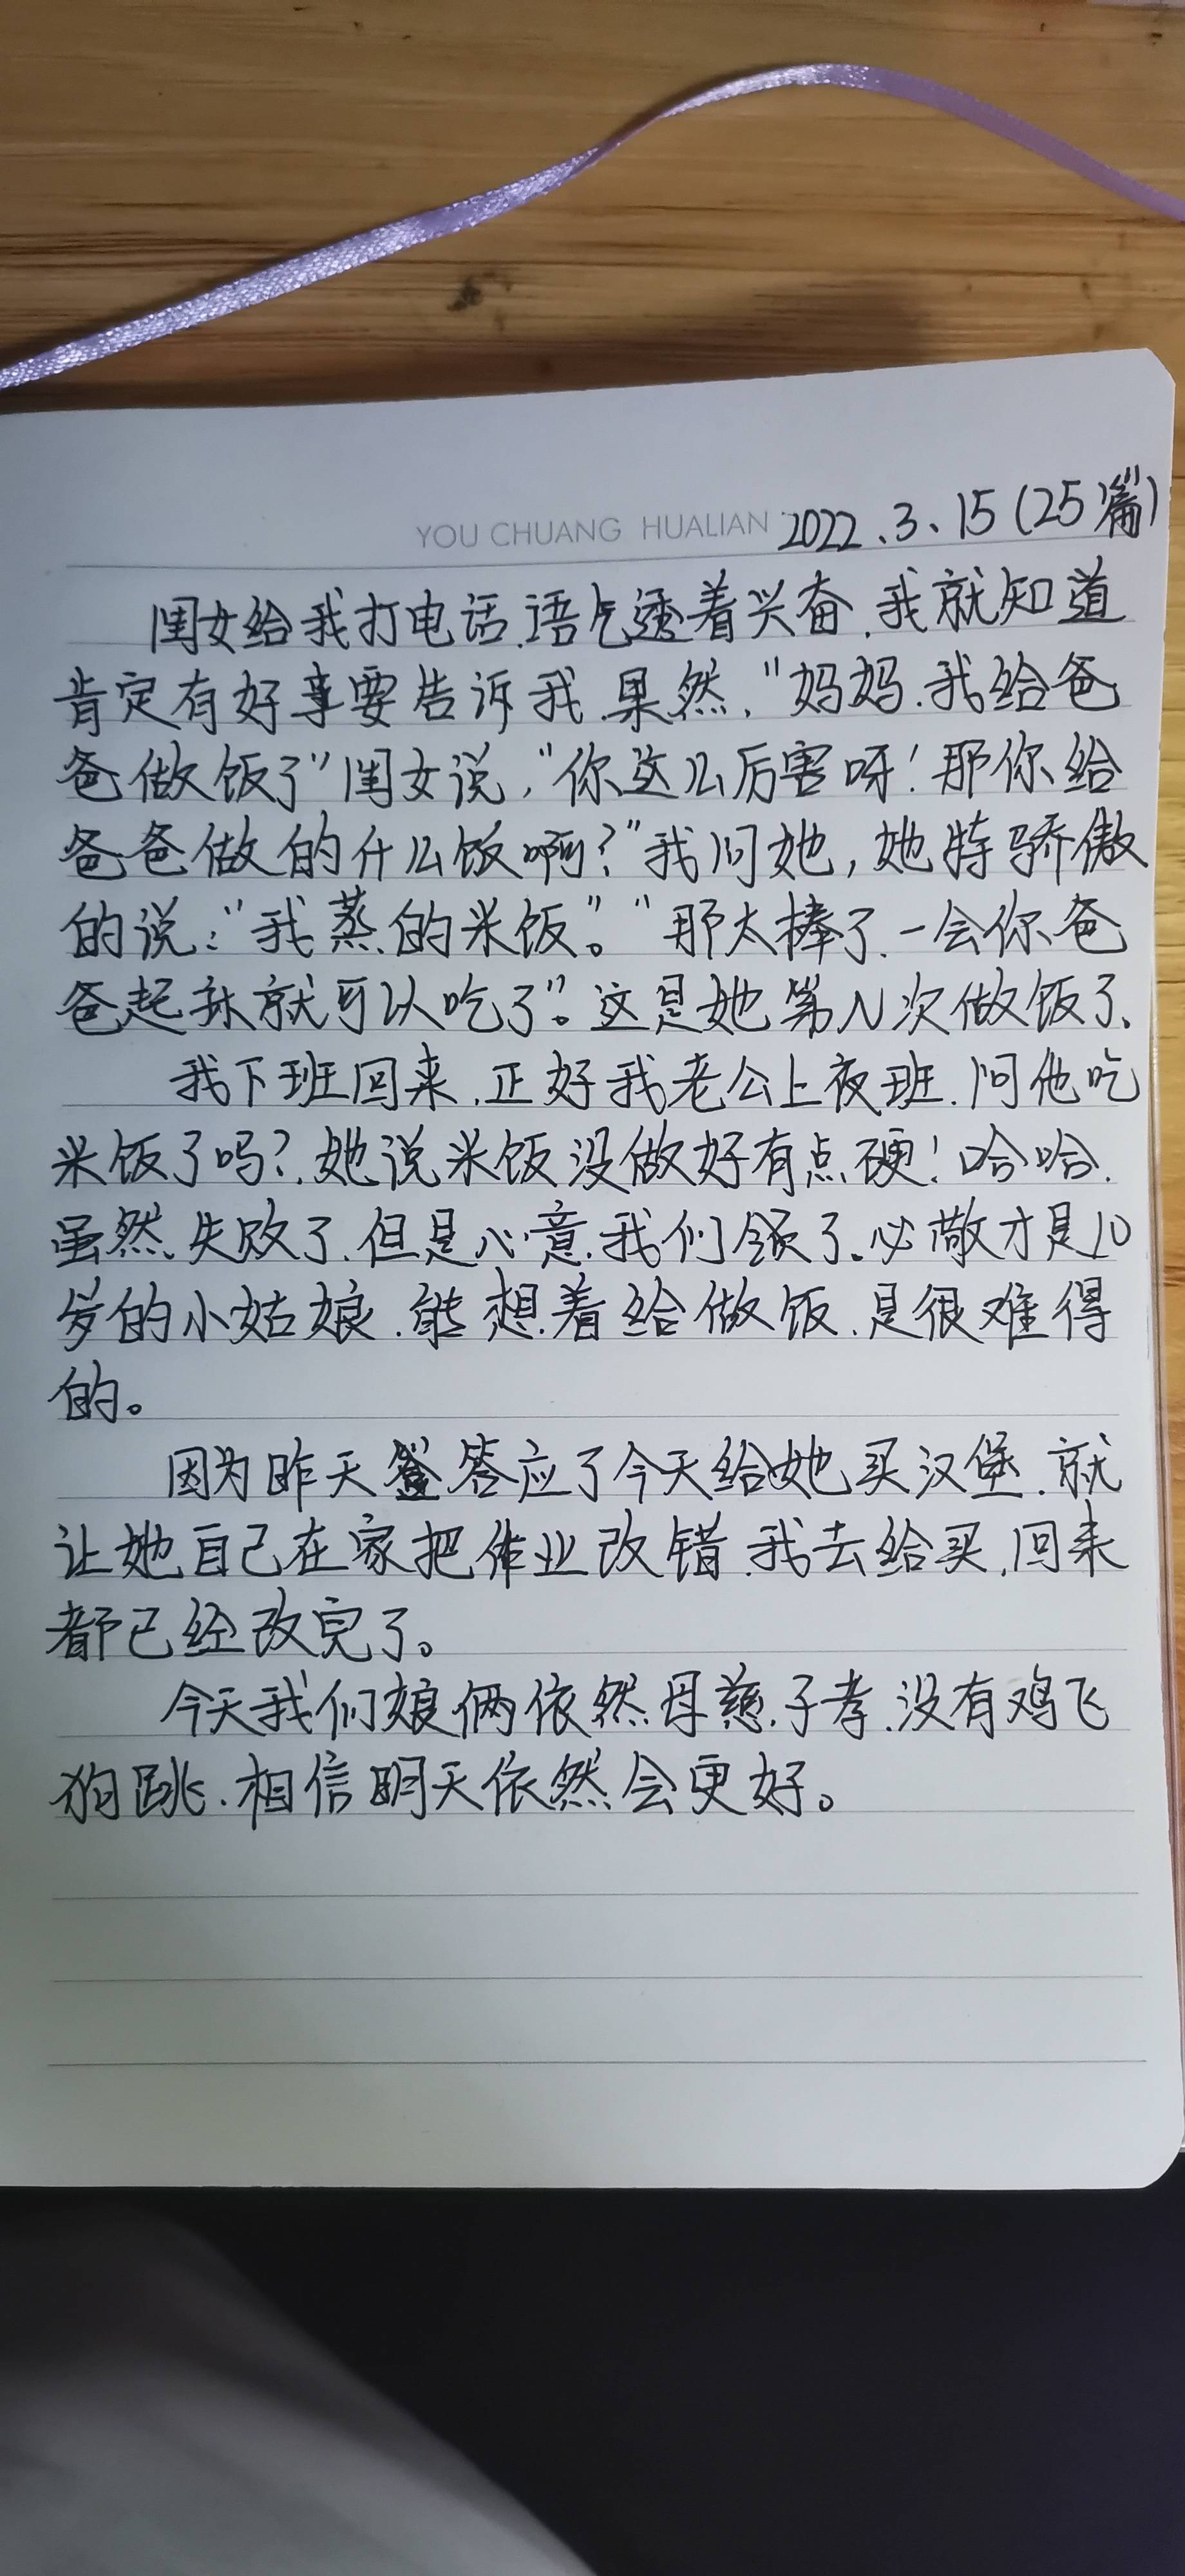 YOU CHUANG HUALIAN 2022.3.15(25篇)
闺女给我打电话.语气透着兴奋.我就知道
肯定有好事要告诉我.果然,"妈妈.我给爸
爸做饭了"闺女说,"你这么厉害呀!那你给
爸爸做的什么饭啊?"我问她,她特骄傲
的说:"我蒸的米饭"。"那太棒了.一会你爸
爸起床就可以吃了"。这是她第N次做饭了.
我下班回来.正好我老公上夜班.问他吃
米饭了吗?.她说米饭没做好有点硬!哈哈.
虽然失败了.但是心意.我们领了。必敬才是10
岁的小姑娘.能想着给做饭.是很难得
的。
因为昨天答应了今天给她买汉堡.就
让她自己在家把作业改错.我去给买,回来
都已经改完了。
今天我们娘俩依然母慈子孝.没有鸡飞
狗跳.相信明天依然会更好。